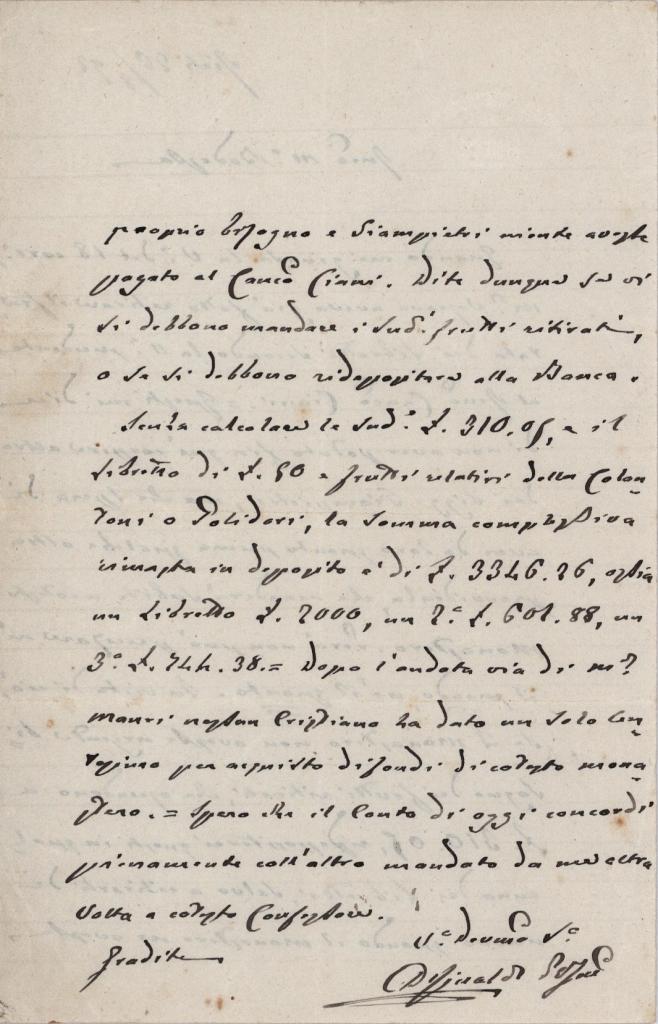 proprio bisogno e Giampietri niente aveste
pagato al Canco Cianni. Dite dunque se vi
si debbono mandare i Sudi frutti ritirati,
o se si debbono ridepositare alla Banca.
Senza calcolare le Sude £. 310.05, e il
Libretto di £. 50 e frutti relativi della Colan-
toni o Polidori, la Somma complessiva
rimasta in deposito è di £. 3346.26, ossia
un Libretto £. 2000, un 2o £. 601.88, un
3o £. 744.38.= Dopo l'andata via di Mr
Mauri nessun Cristiano ha dato un Solo Cen-
tesimo per acquisto di fondi di cotesto mona-
stero. = Spero che il Conto di oggi concordi
pienamente coll'altro mandato da me altra
volta a cotesto Confessore.
Gradite
Vo Devmo So